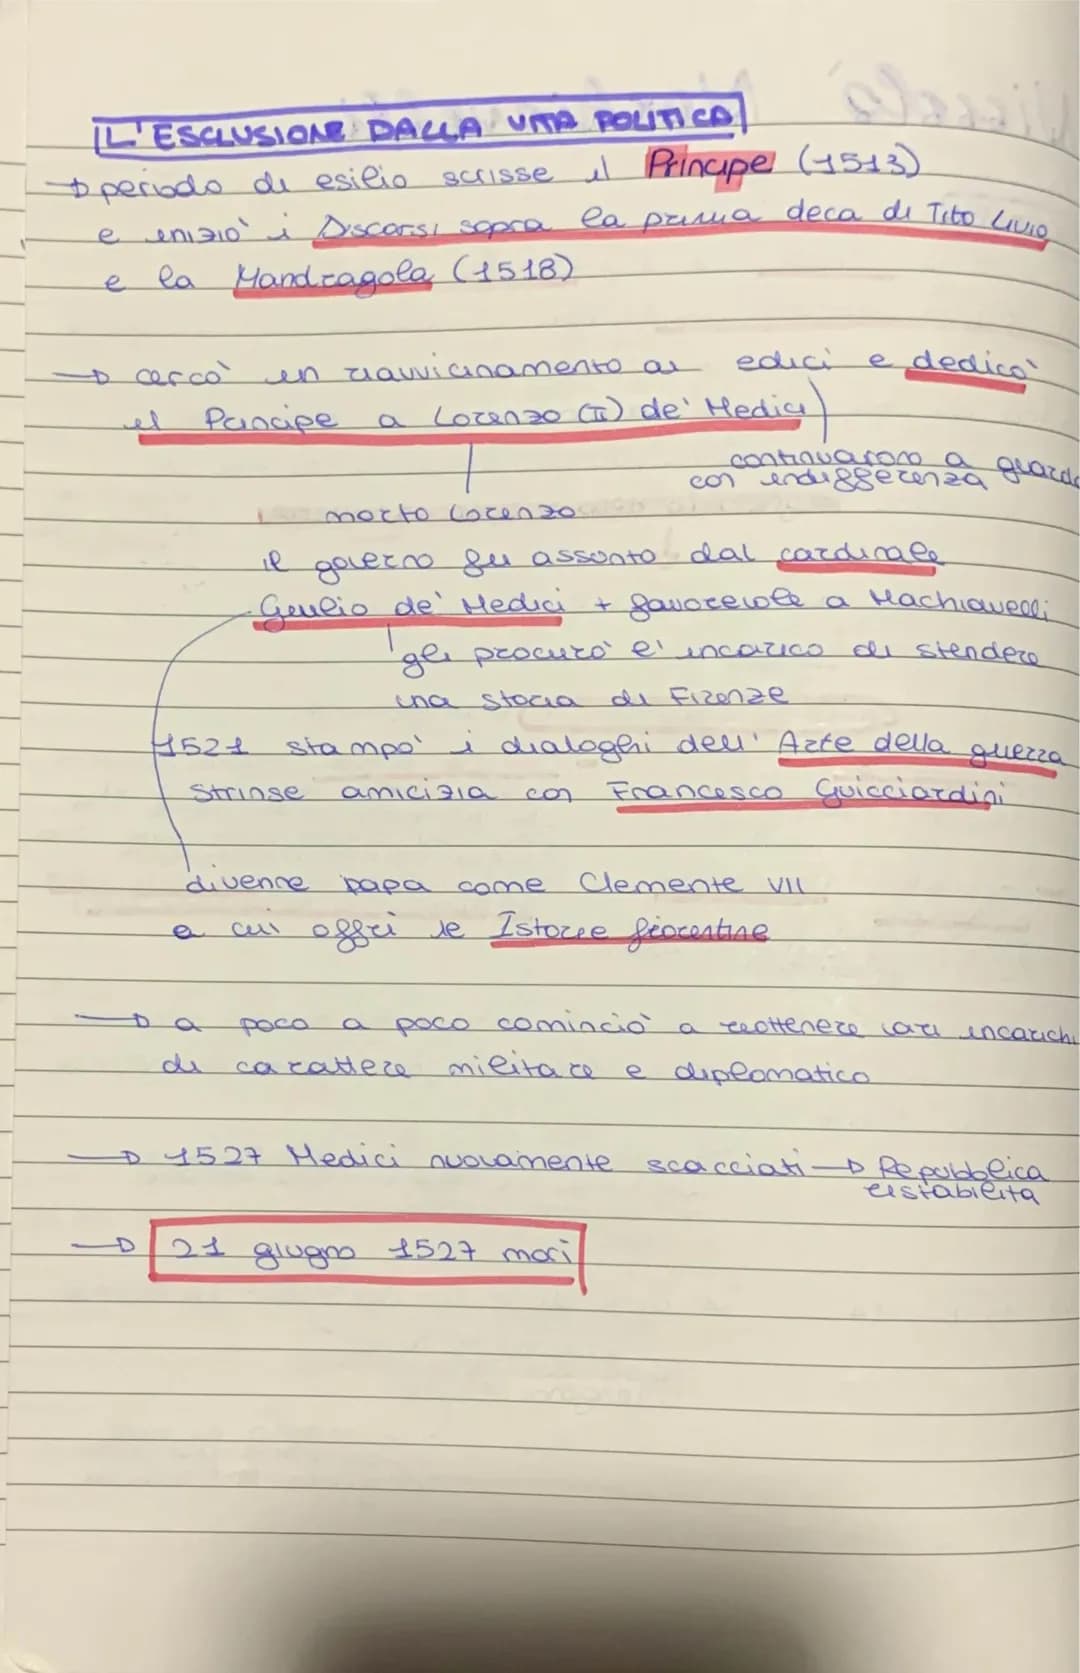 L'ESCLUSIONE DALLA VITA POLITICA
→ periodo di esilio scrisse il Principe (1513)
e iniziò i Discorsi sopra la prima deca di Tito Livio
e la Mandragola (1518)
→ cercò un riavvicinamento ai edici e dedicò
il Principe a Lorenzo (II) de' Medici
continuarono a guarda
con indifferenza
morto Lorenzo
il governo fu assunto dal cardinale
Giulio de' Medici + favorevole a Machiavelli
gli procurò l'incarico di stendere
una storia di Firenze
1521 stampò i dialoghi dell'Arte della guerra
strinse amicizia con Francesco Guicciardini
divenne papa come Clemente VII
a cui offrì le Istorie fiorentine
→ a poco a poco cominciò a riottenere vari incarichi
di carattere militare e diplomatico
→ 1527 Medici nuovamente scacciati → Repubblica
ristabilita
→ 21 giugno 1527 morì